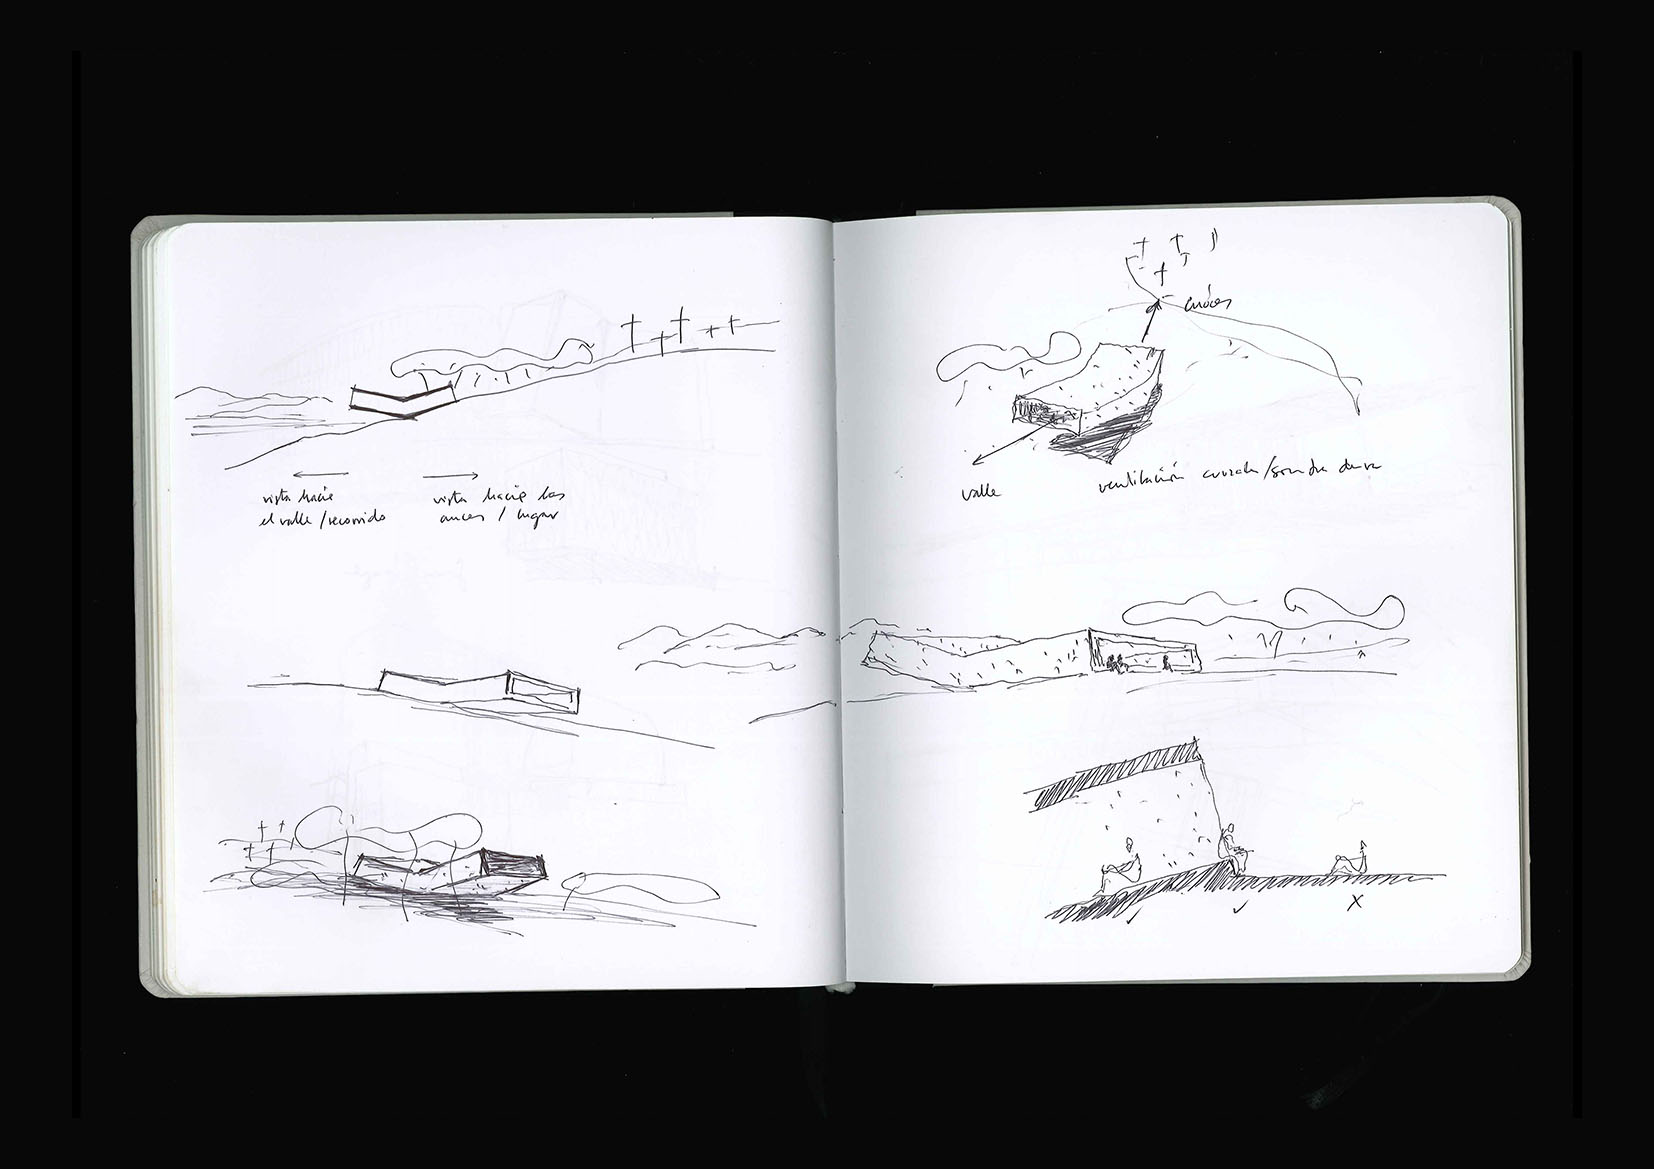 vista hacia
el valle / recorrido
vista hacia las
cruces / lugar
cruces
valle
ventilación cruzada / sombra